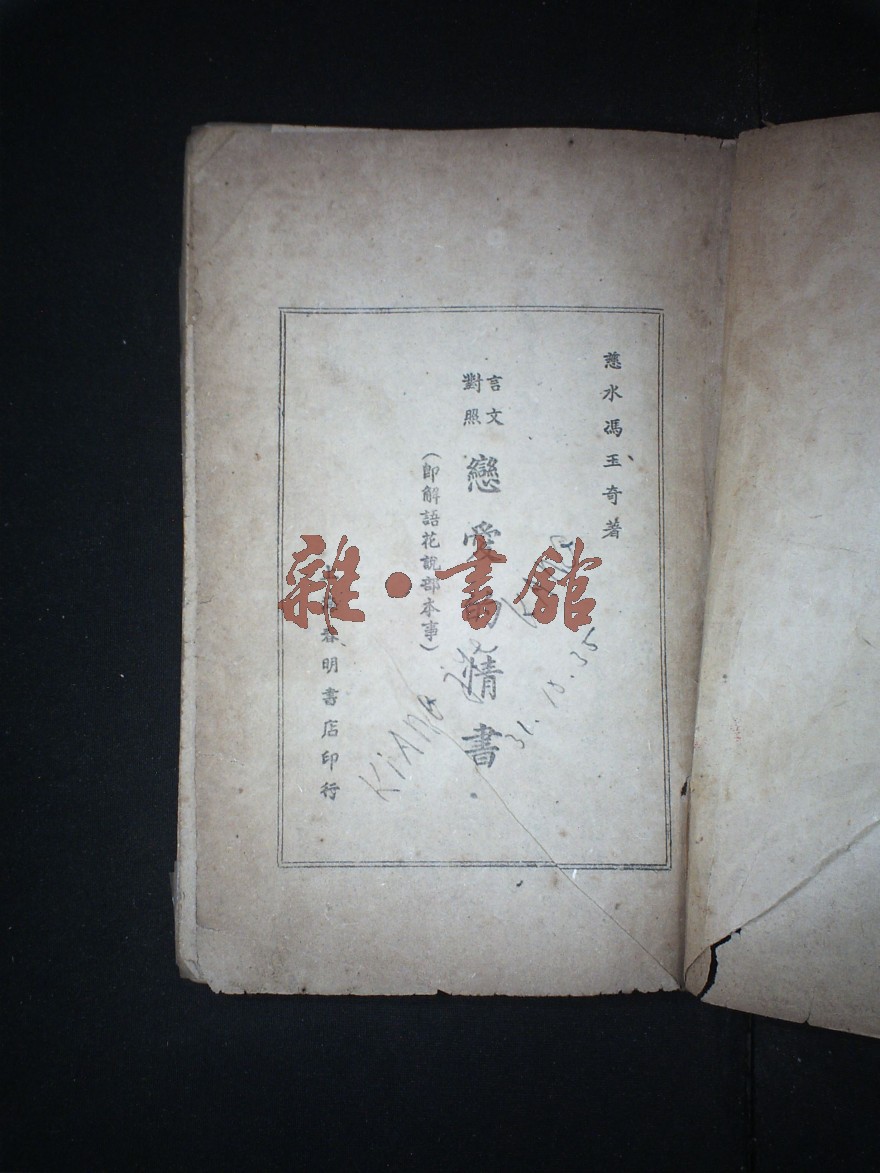 慈水馮玉奇著
言文
對照
戀愛 情書
(卽解語花說部本事)
春明書店印行
KiANG
31.10.35
雜·書館